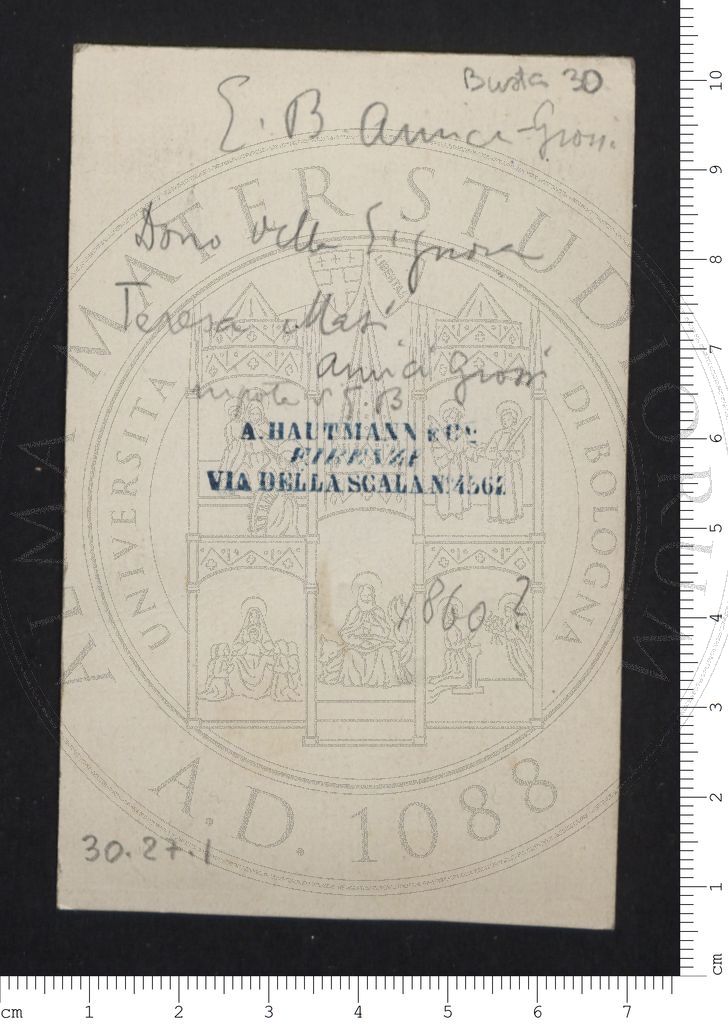 Busta 30
E. B Amici-Grossi
Dono della Signora
Teresa Masi
Amici Grossi
nipote
A. HAUTMANN E C.
FIRENZE
VIA DELLA SCALA N. 4562
1860?
30.27.1
ALMA MATER STUDIORUM
UNIVERSITA DI BOLOGNA
LIBERTAS
A.D. 1088
10
9
8
7
6
5
4
3
2
1
cm
cm 1 2 3 4 5 6 7